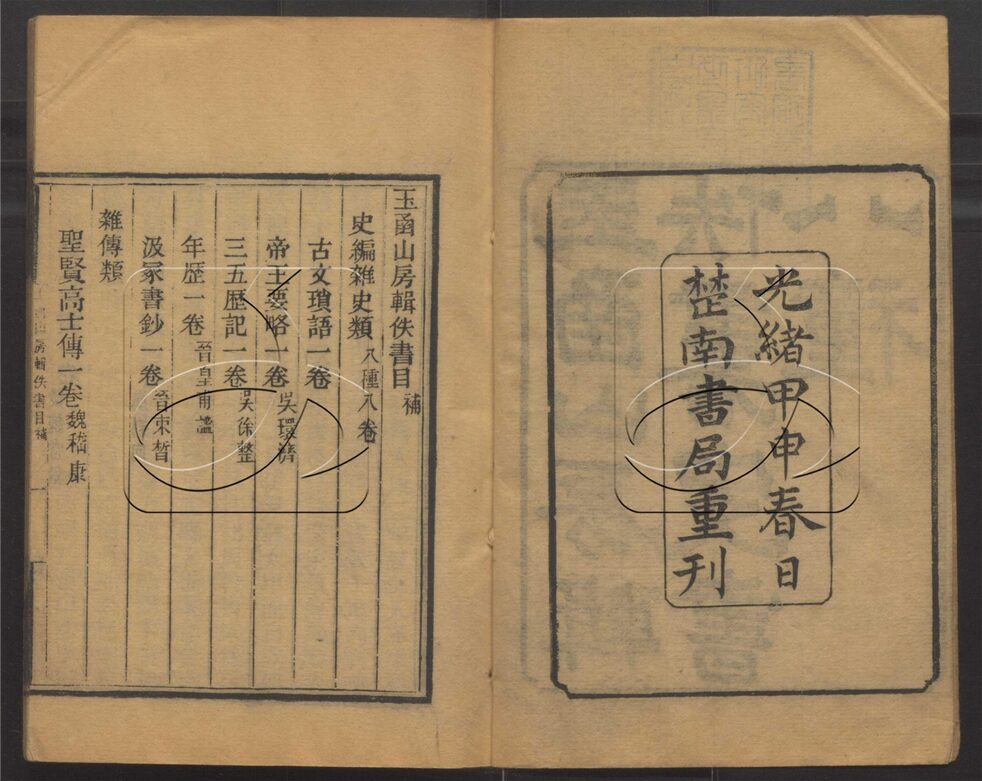 光緒甲申春日
楚南書局重刊
玉函山房輯佚書目補
史編雜史類八種八卷
古文瑣語一卷
帝王要略一卷吳環濟
三五歴記一卷吳徐整
年歴一卷晉皇甫謐
汲冢書鈔一卷晉束晳
雜傳類
聖賢高士傳一卷魏嵇康
房輯佚書目補